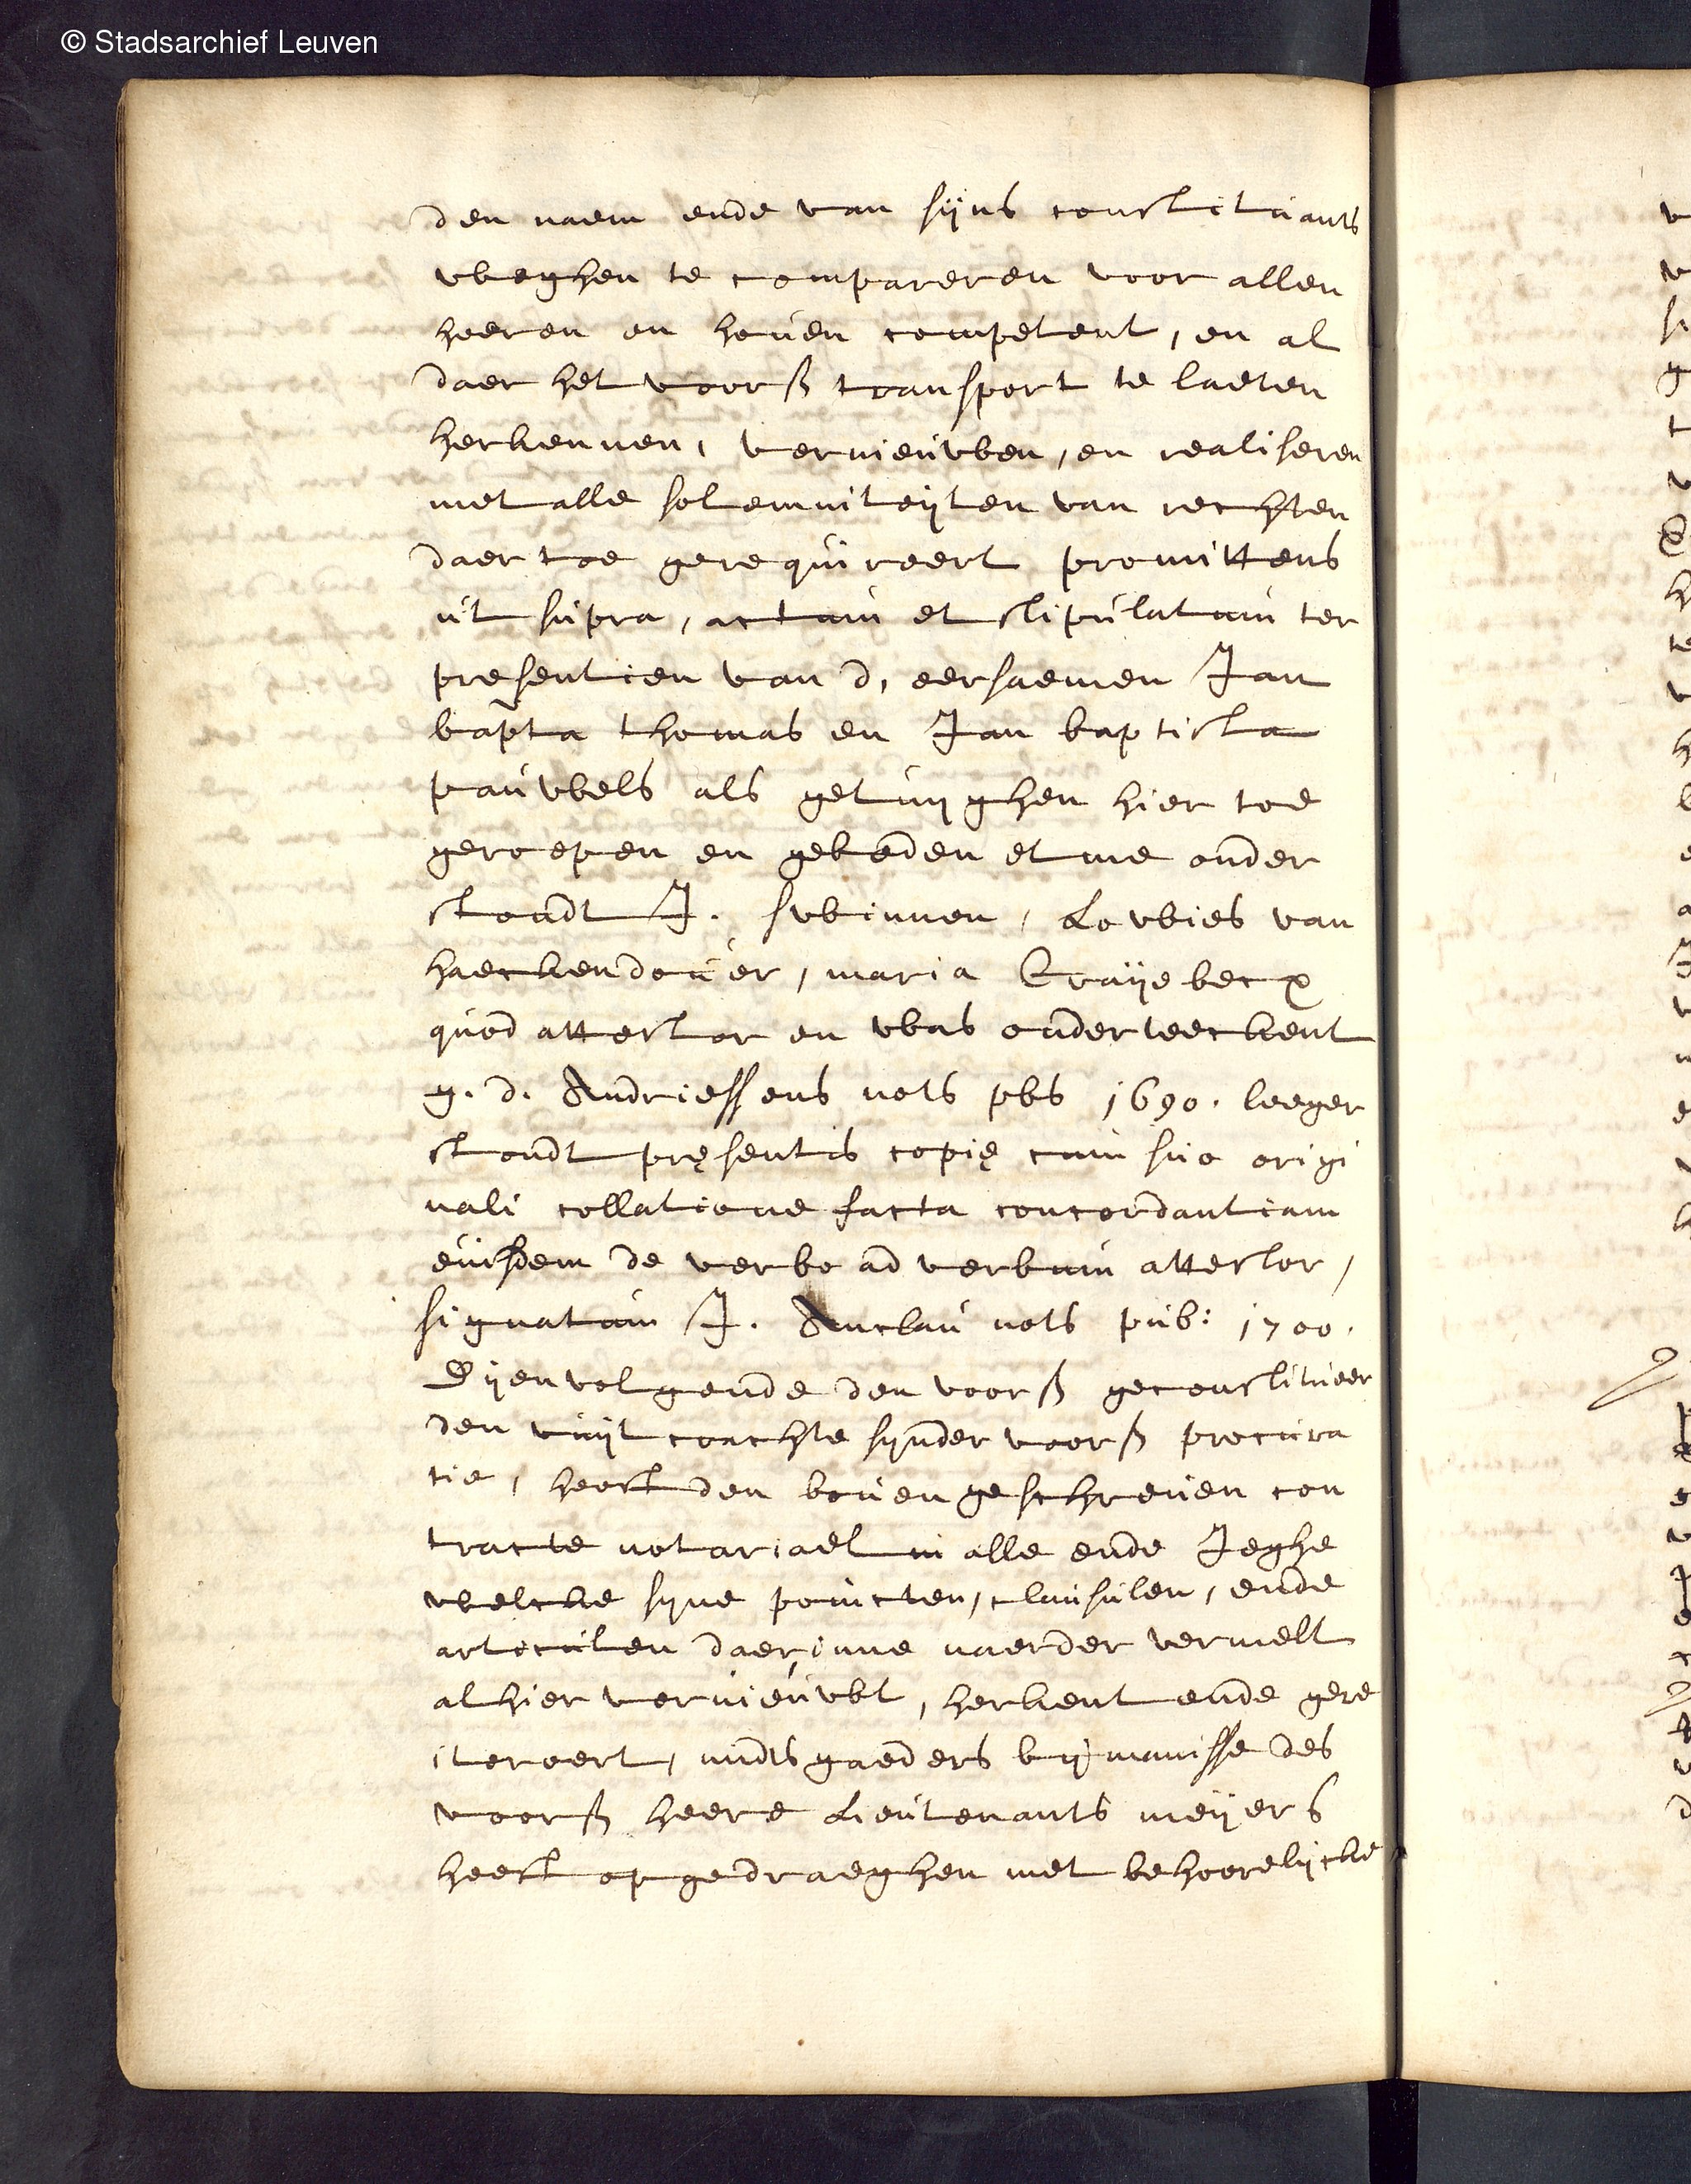 © Stadsarchief Leuven
den naem ende van sijns constituants
weghen te compareren voor allen
heeren en hoven competent, en al
daer het voorß transport te laeten
herkennen, vernieuwen, en realiseren
met alle solemniteijten van rechten
daer toe gerequireert promittens
ut supra, actum et stipulatum ter
presentien van d, eersaemen Jan
bapta thomas en Jan baptista
pauwels als getuyghen hier toe
geroepen en gebeden et me onder
stondt J. swinnen, Lowies van
haeckendover, maria Craijebecx
quod attestor en was onderteeckent
g. d. Andriessens nots pbs 1690. leeger
stondt presentis copię cum suo origi
nali collatione facta concordantiam
euisdem de verbo ad verbum attestor,
signatum J. Anclau nots pub: 1700.
Dijenvolgende den voorß geconstitueer
den vuijt crachte synder voorß procura
tie, heeft den bovengeschreven con
tracte notariael in alle ende Jeghe
welcke syne poincten, clausulen, ende
articulen daerinne naerder vermelt
alhier vernieuwt, herkent ende gere
itereert, midtsgaeders bij manisse des
voorß heere Lieutenants meijers
heeft opgedraeghen met behoorelijcke